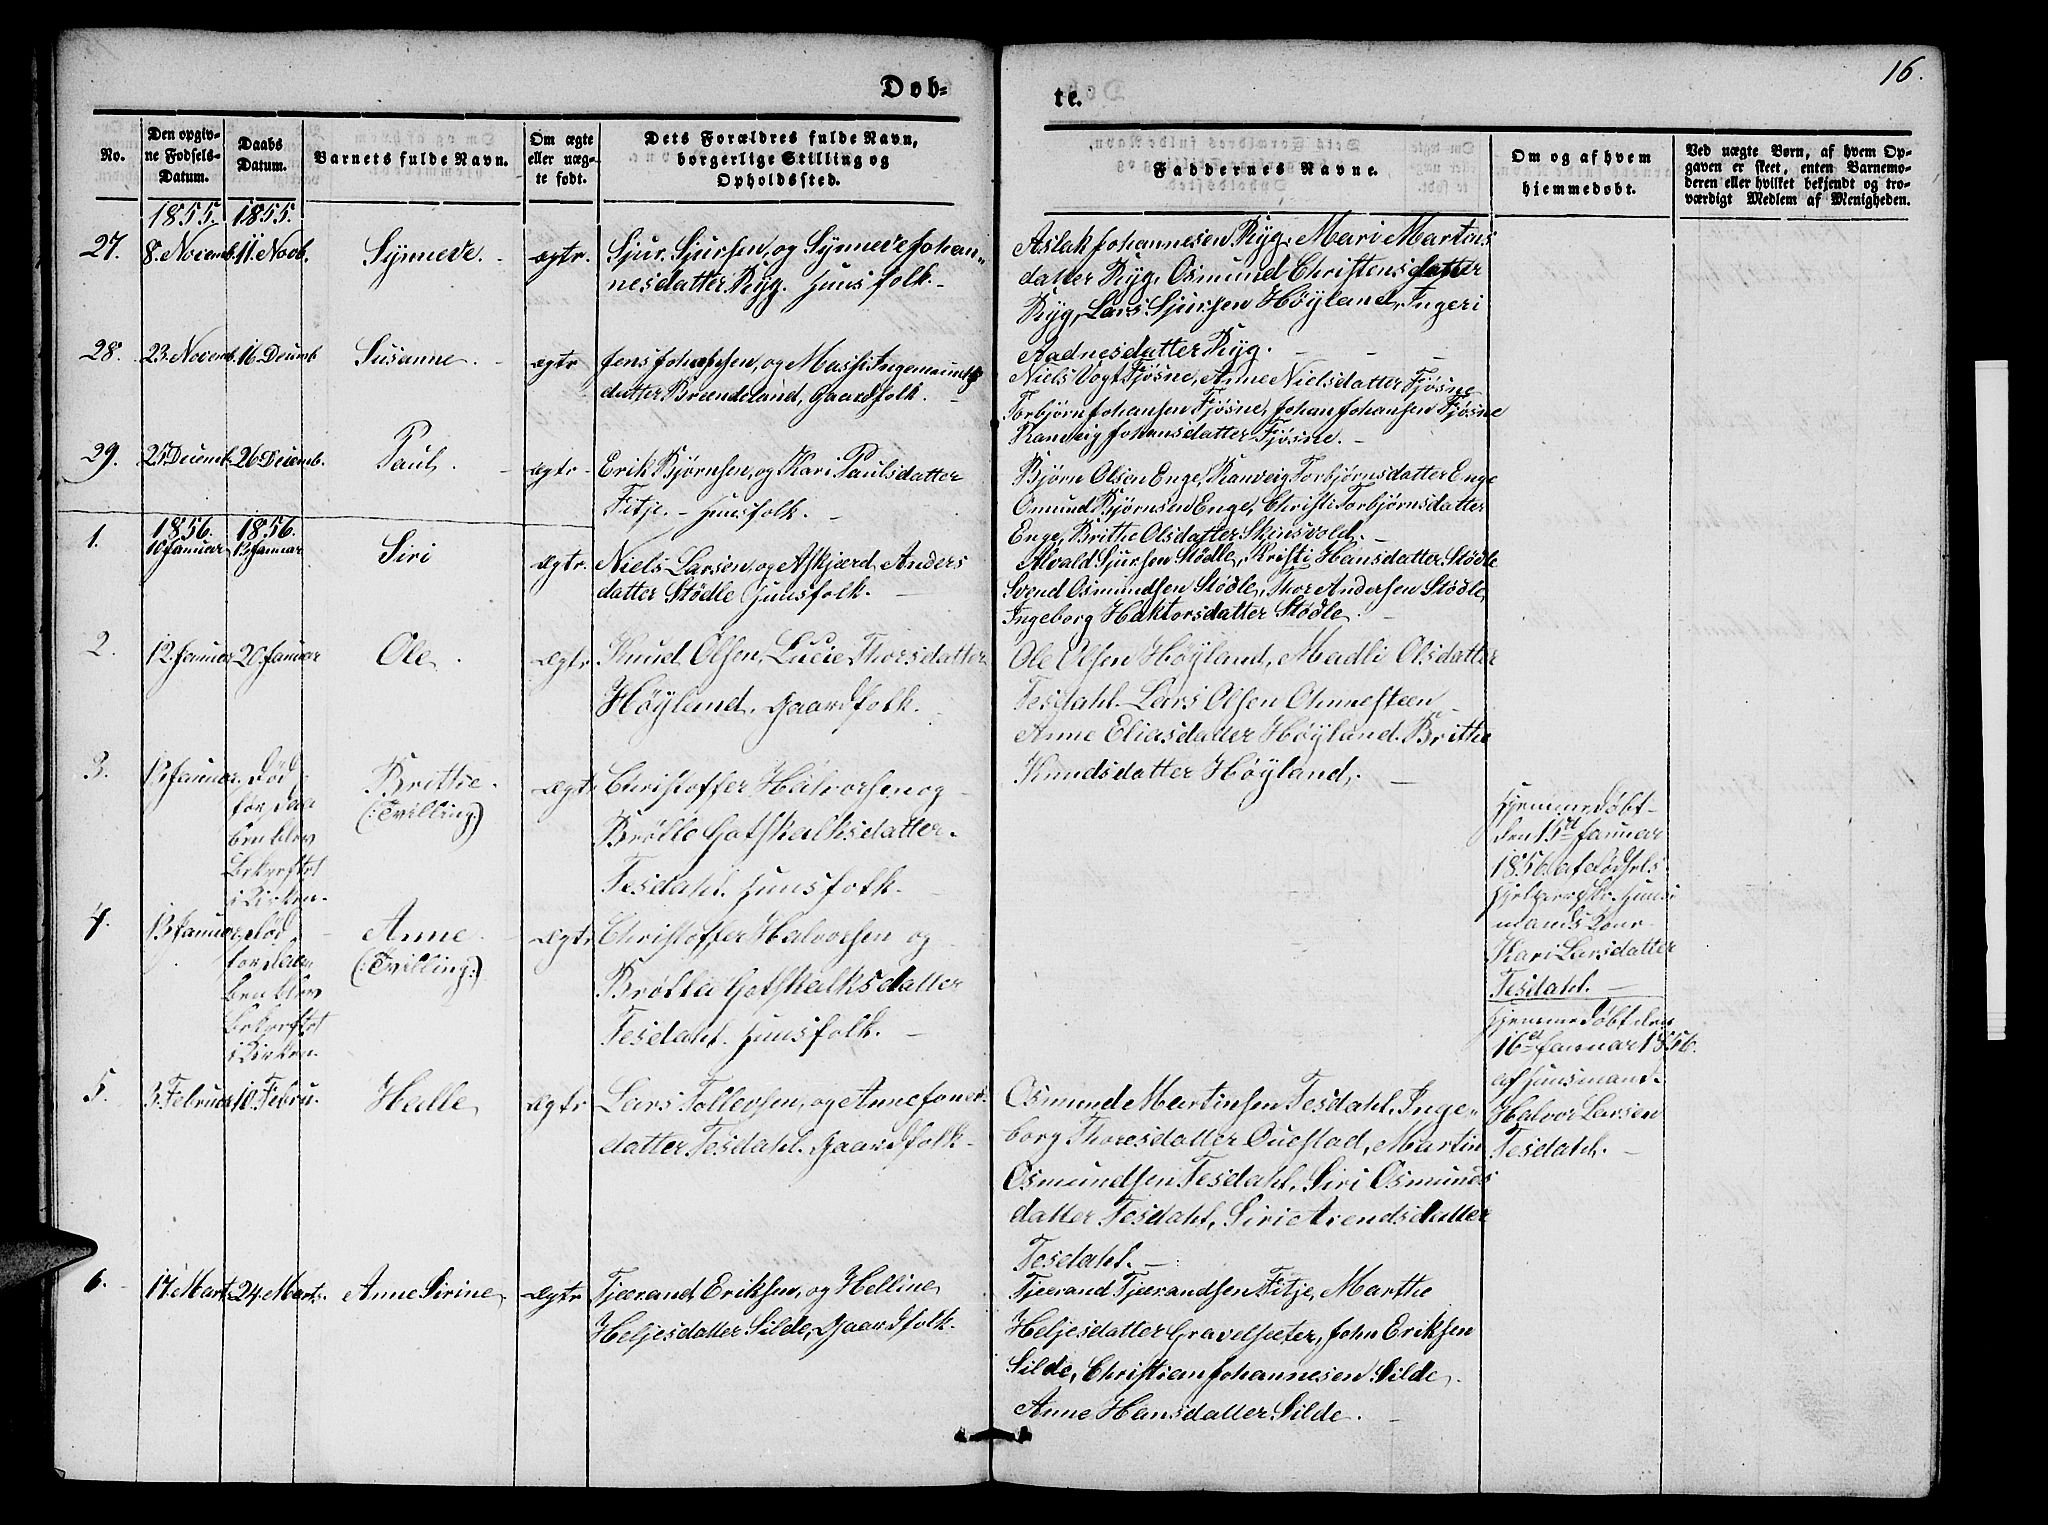 16.
Døb-
te.
No.
Den opgiv-
ne Fødsels-
Datum.
Daabs
Datum.
Barnets fulde Navn.
Om ægte
eller uæg-
te født.
Dets Forældres fulde Navn,
borgerlige Stilling og
Opholdssted.
Faddernes Navne.
Om og af hvem
hjemmedøbt.
Ved uægte Børn, af hvem Op-
gaven er skeet, enten Barnemo-
deren eller hvilket bekjendt og tro-
værdigt Medlem af Menigheden.
1855. 1855.
27. 8. Novemb. 11. Novb. Synneve. ægte.
Sjur Sjursen, og Synneve Johan-
nesdatter Ryg. Huusfolk.
Aslak Johannesen Ryg, Mari Martens
datter Ryg, Osmund Christensdatter
Ryg, Lars Sjursen Höyland, Ingeri
Aadnesdatter Ryg.
28. 23. Novemb. 16. Decemb Susanne. ægte
Jens Johansen, og
datter Gaardfolk.
Niels Vogt Fjøsne, Anne Nielsdatter Fjøsne
Torbjörn Johansen Fjøsne, Johan Johansen Fjøsne
Ranveig Johansdatter Fjøsne.
29. 25 Decemb. 26 Decemb. Paul. ægte
Erik Bjørnsen, og Kari Paulsdatter
Fitje. Huusfolk.
Bjørn Olsen Enge, Ranveig Torbjørnsdatter Enge
Omund Bjørnsen Enge, Christi Torbjørnsdatter
Enge, Brithe Olsdatter Skinsvold.
1856. 1856.
1. 10 Januar 13 Januar Siri ægte.
Niels Larsen, og Askjærd Anders
datter Stödle Huusfolk.
Alvald Sjursen Stödle, Kristi Hansdatter Stödle
Svend Osmundsen Stödle, Thor Andersen Stödle
Ingeborg Haktorsdatter Stödle.
2. 12. Januar 20. Januar Ole. ægte
Knud Olsen, Lucie Thorsdatter
Höyland. Gaardfolk.
Ole Olsen Höyland, Madli Olsdatter
Tesdahl. Lars Olsen Ohmesteen
Anne Eliasdatter Höyland. Brithe
Knudsdatter Höyland.
3. 13 Januar. Död
för Daa
ben blev
Bekreftet
i Kirken.
Brithe.
(: Tvilling:)
ægte
Christoffer Halvorsen og
Gotskalksdatter.
Tesdahl. Huusfolk.
Hjemmedöbt
den 15d Januar
1856. af Födsels
Huus
mands Kone
Kari Larsdatter
Tesdahl.
4. 13 Januar. Död
för Daa
ben blev
Bekreftet
i Kirken.
Anne
(: Tvilling:)
ægte
Christoffer Halvorsen og
Gotskalksdatter
Tesdahl. Huusfolk.
Hjemmedöbt den
16d Januar 1856.
af Huusmand.
Halvor Larsen
Tesdahl.
5. 3. Februar 10. Febru. Halle ægte
Lars Tollevsen, og Anne Jones-
datter Tesdahl. Gaardfolk
Osmund Martinsen Tesdahl. Inge-
borg Thoresdatter Ouestad, Martin
Osmundsen Tesdahl, Siri Osmunds
datter Tesdahl, Siri Arendsdatter
Tesdahl.
6. 17. Mart. 24. Mart. Anne Sirine ægte
Tjærand Eriksen, og Helline
Heljesdatter Silde, Gaardfolk.
Tjærand Tjærandsen Fitje, Marthe
Heljesdatter Gravelsæter, John Eriksen
Silde, Christian Johannesen Silde.
Anne Hansdatter Silde.